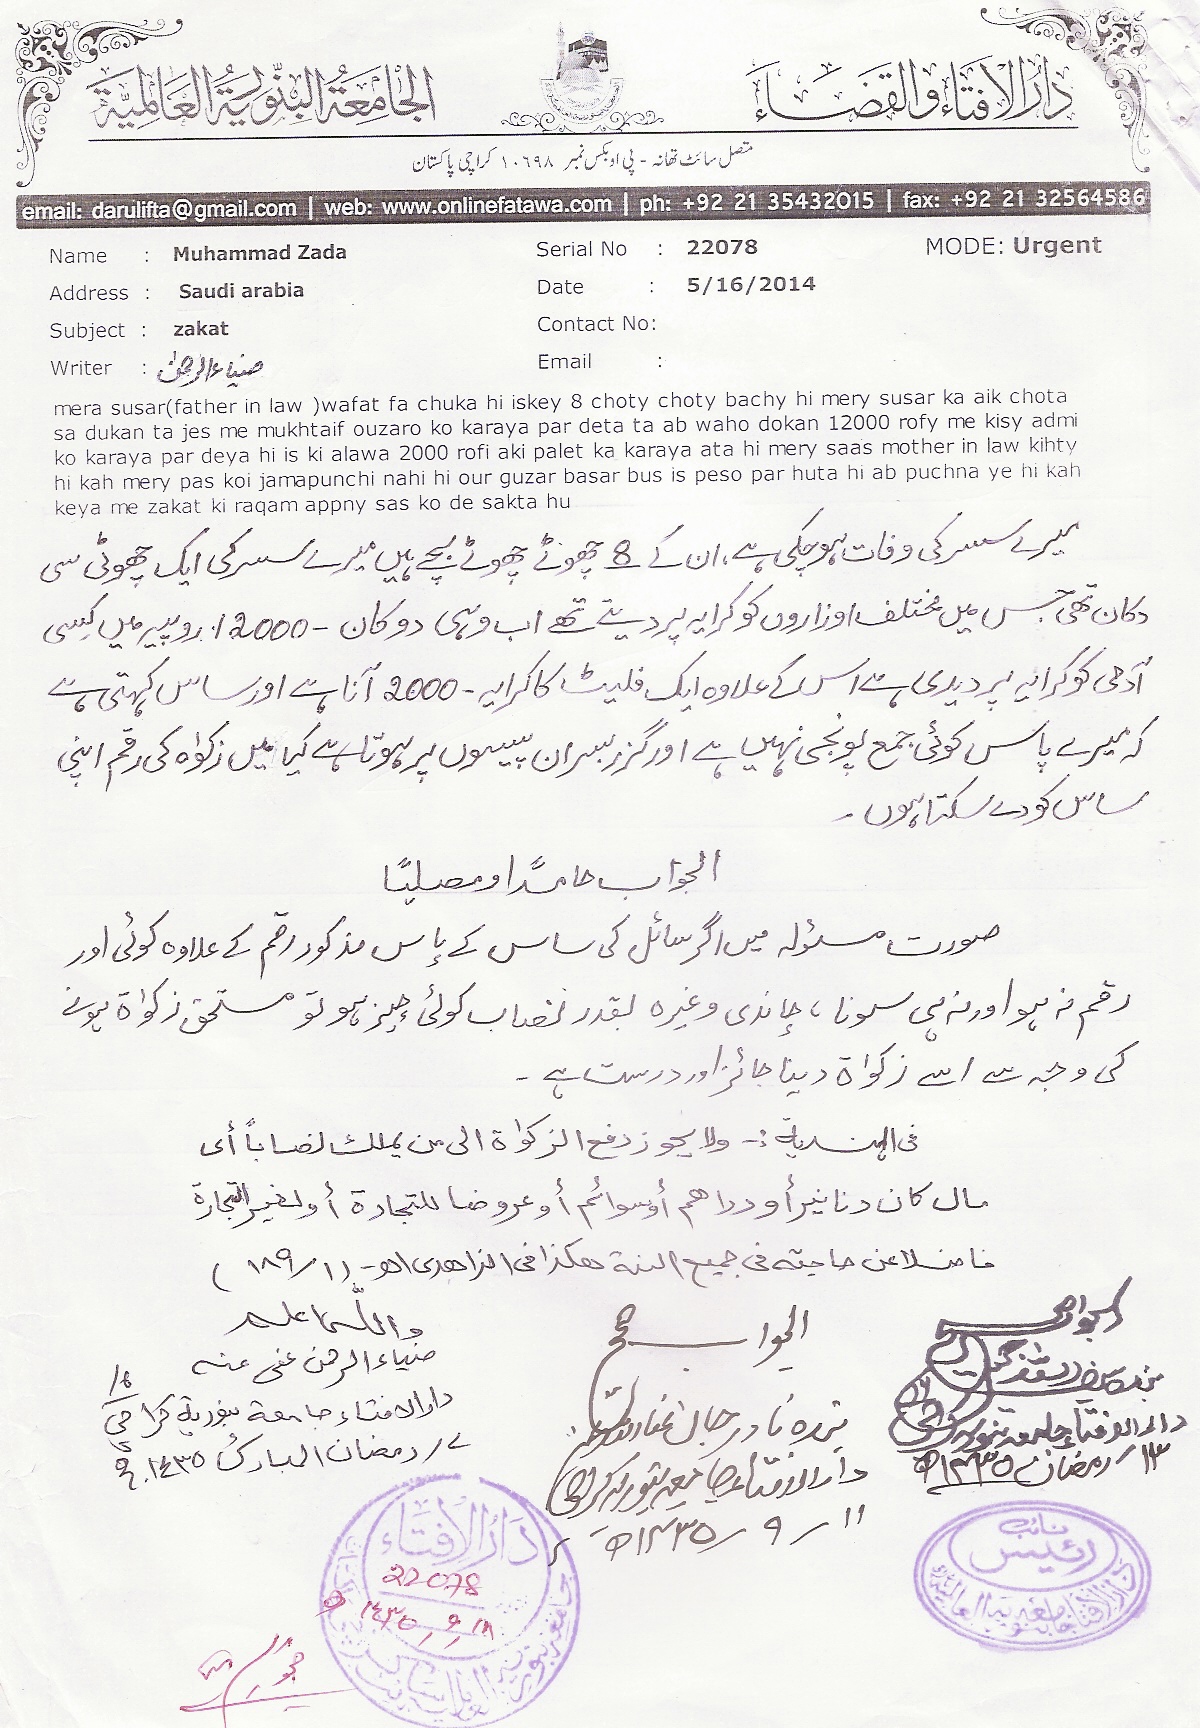 دار الافتاء والقضاء
الجامعة البنورية العالمية
متصل سائٹ تھانہ - پی او بکس نمبر ۱۰۶۹۸ کراچی پاکستان
email: darulifta@gmail.com | web: www.onlinefatawa.com | ph: +92 21 35432015 | fax: +92 21 32564586
Name : Muhammad Zada Serial No : 22078 MODE: Urgent
Address : Saudi arabia Date : 5/16/2014
Subject : zakat Contact No:
Writer : ضیاء الرحمٰن Email :
mera susar(father in law )wafat fa chuka hi iskey 8 choty choty bachy hi mery susar ka aik chota
sa dukan ta jes me mukhtaif ouzaro ko karaya par deta ta ab waho dokan 12000 rofy me kisy admi
ko karaya par deya hi is ki alawa 2000 rofi aki palet ka karaya ata hi mery saas mother in law kihty
hi kah mery pas koi jamapunchi nahi hi our guzar basar bus is peso par huta hi ab puchna ye hi kah
keya me zakat ki raqam appny sas ko de sakta hu
میرے سسر کی وفات ہو چکی ہے، ان کے 8 چھوٹے چھوٹے بچے ہیں میرے سسر کی ایک چھوٹی سی
دکان تھی جس میں مختلف اوزاروں کو کرایہ پر دیتے تھے اب وہی دوکان -12000 روپیہ میں کسی
آدمی کو کرایہ پر دیدی ہے اس کے علاوہ ایک فلیٹ کا کرایہ -2000 آتا ہے اور ساس کہتی ہے
کہ میرے پاس کوئی جمع پونجی نہیں ہے اور گزر بسر ان پیسوں پر ہوتا ہے کیا میں زکوٰة کی رقم اپنی
ساس کو دے سکتا ہوں ۔
الجواب حامدًا ومصلیًا
صورت مسئولہ میں اگر سائل کی ساس کے پاس مذکور رقم کے علاوہ کوئی اور
رقم نہ ہو اور نہ ہی سونا ، چاندی وغیرہ بقدر نصاب کوئی چیز ہو تو مستحق زکوٰة ہونے
کی وجہ سے اسے زکوٰة دینا جائز اور درست ہے ۔
فی الہندیة :- ولا یجوز دفع الزکوٰة الی من یملک نصاباً أی
مال کان دنانیر أو دراھم أو سوائم أو عروضا للتجارة أو لغیر التجارة
فاضلا عن حاجته فی جمیع السنة ھکذا فی الزاھدی اھ- (۱/۱۸۹)
واللہ اعلم
ضیاء الرحمن عفی عنه
دارالافتاء جامعة بنوریة کراچی
۷/ رمضان المبارک ۱۴۳۵ھ
الجواب صحیح
دارالافتاء جامعہ بنوریہ کراچی
۱۱/۹/۱۴۳۵ھ
الجواب صحیح
دارالافتاء جامعہ بنوریہ کراچی
۱۳/ رمضان ۱۴۳۵ھ
نائب
رئیس
دار الافتاء جامعہ بنوریہ العالمیہ
دار الافتاء
22078